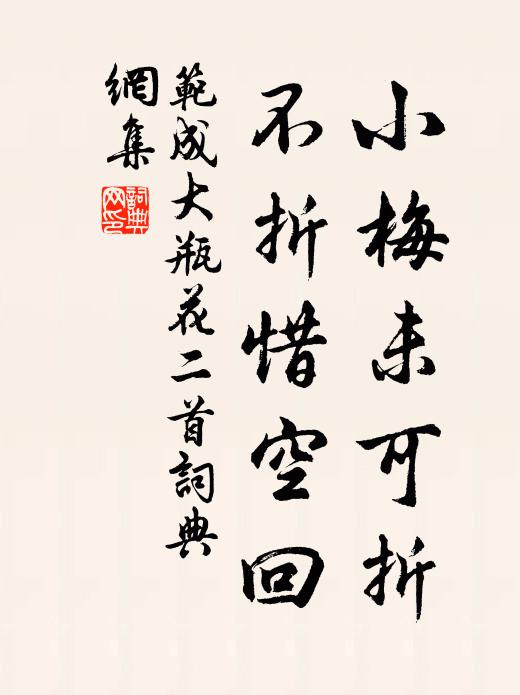 小梅未可折
不折惜空回
範成大瓶花二首詞典
網集
詞典
网印